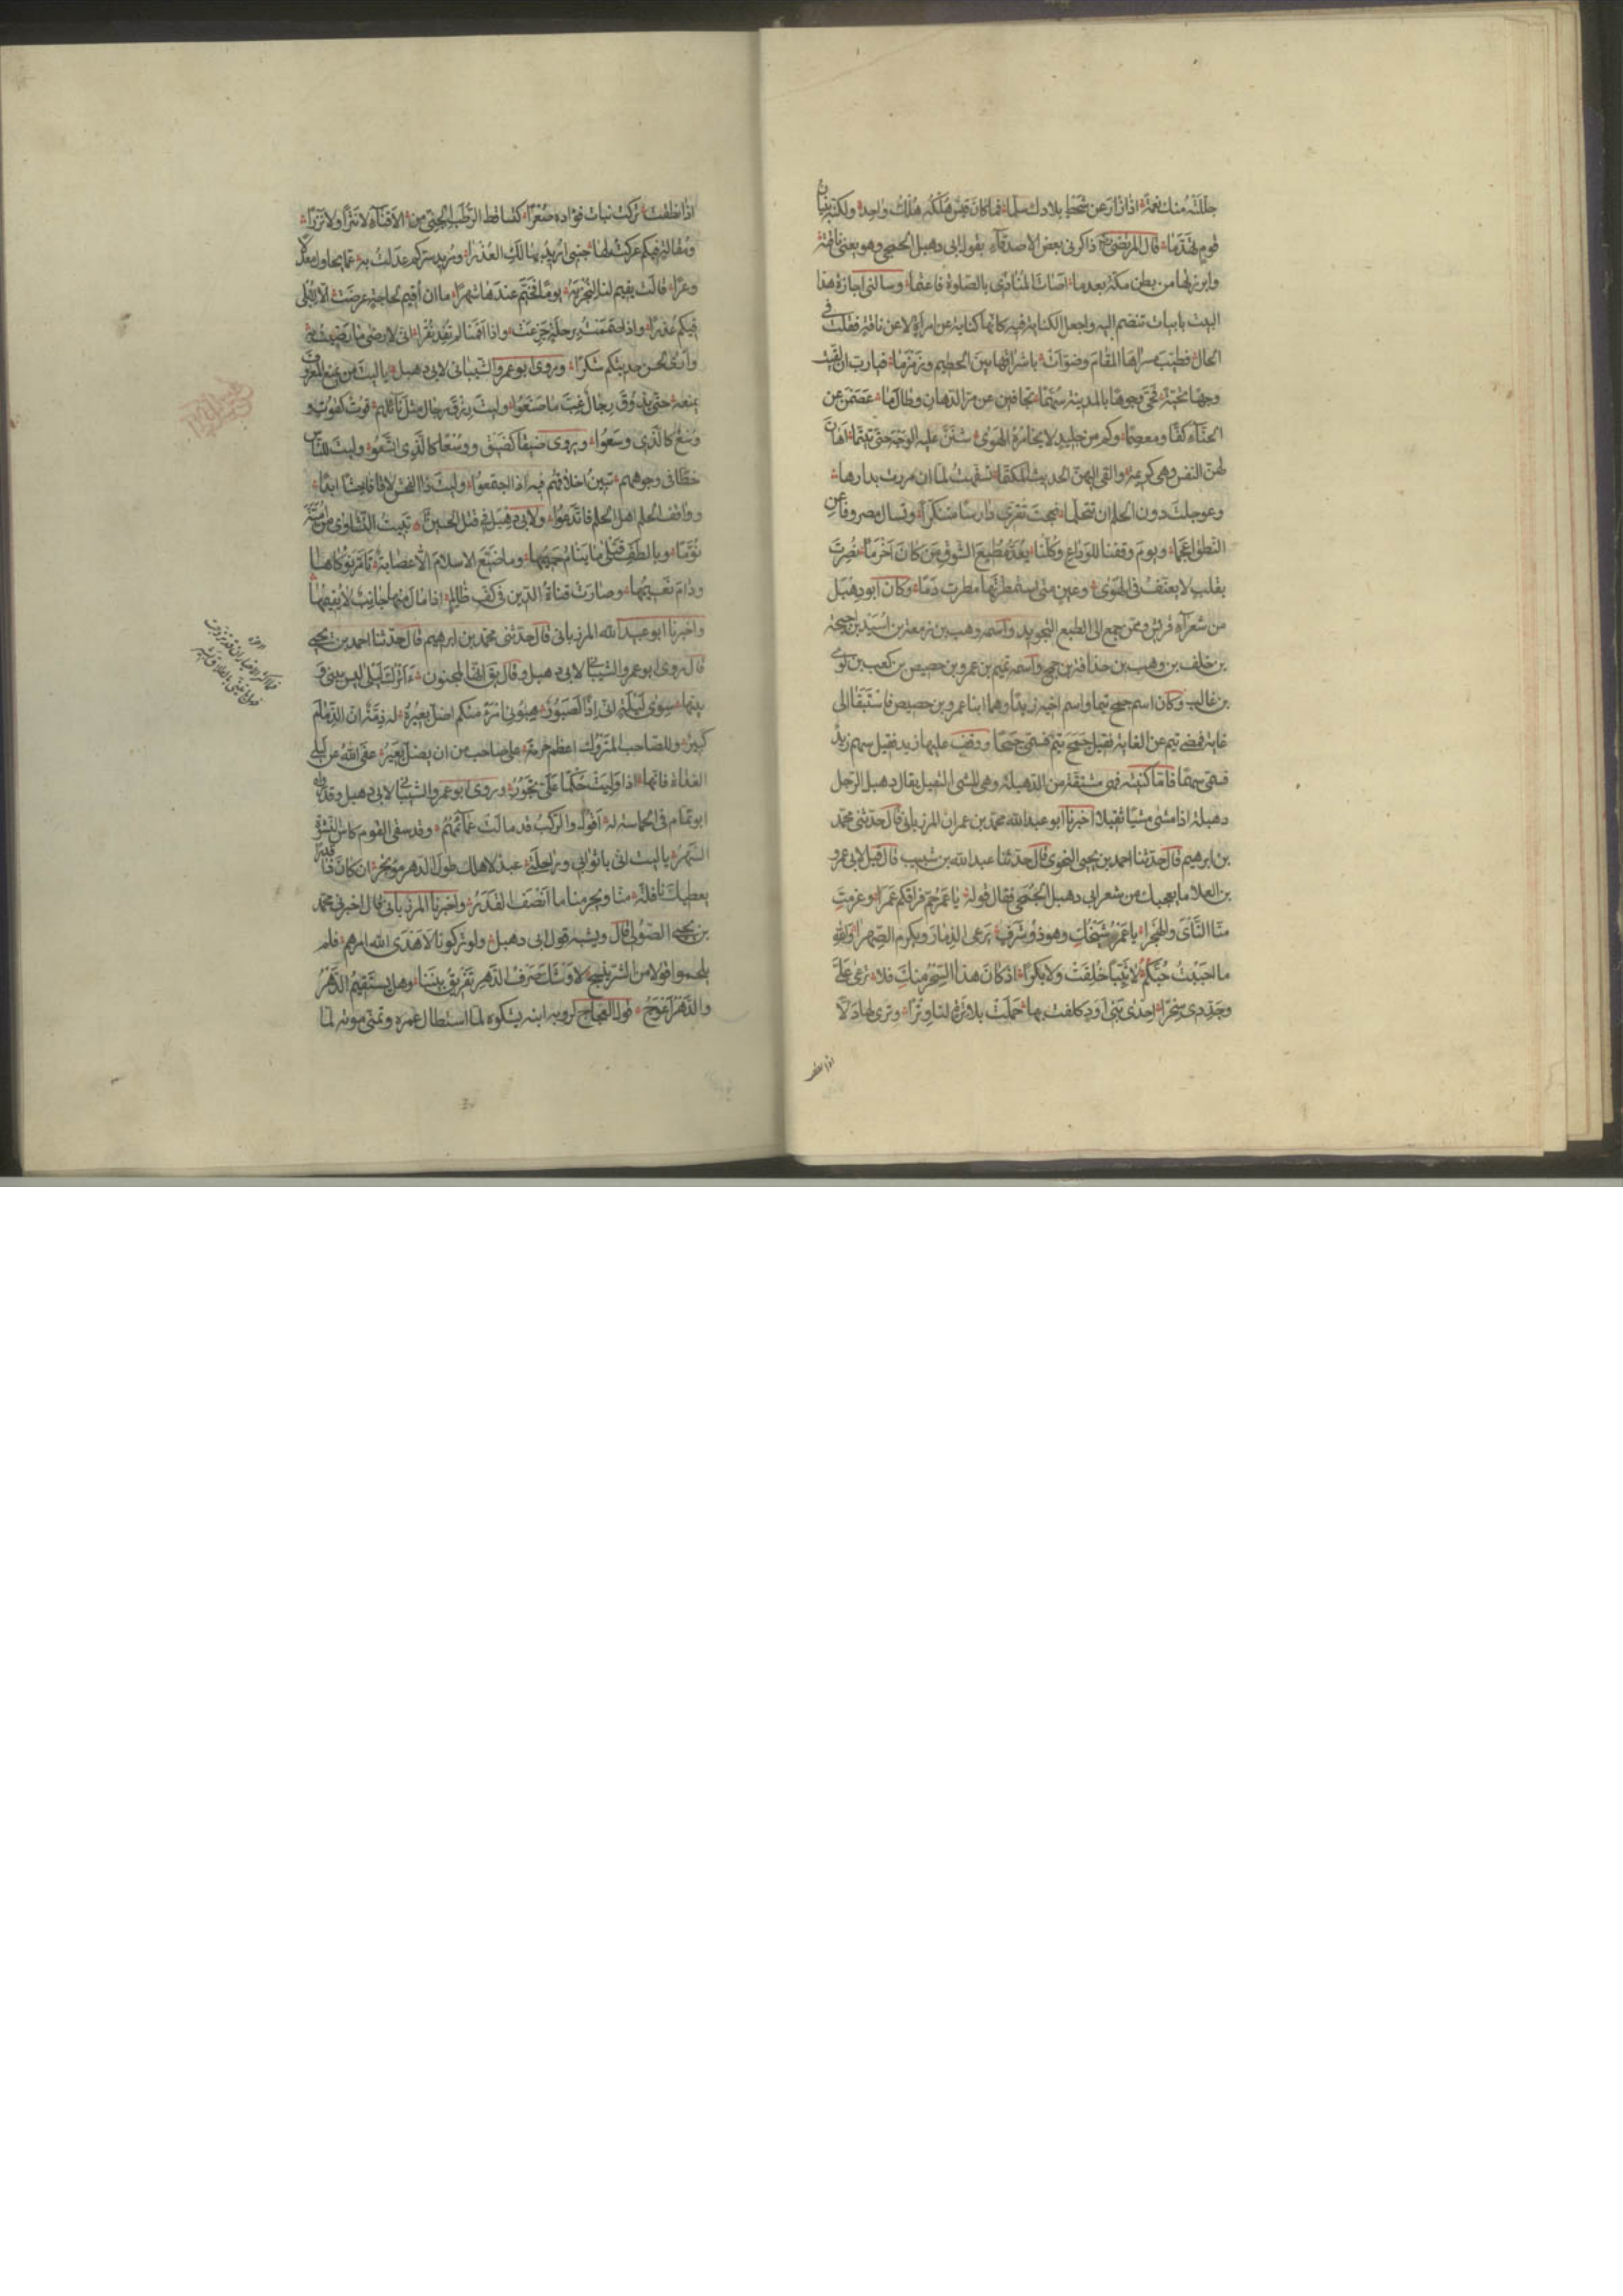 جللته منك نعمة اذا زار عن شحط بلادك سلما فما كان قيس هلكه هلك واحد ولكنه بنيان
قوم تهدما قال المرتضى ذاكرنى بعض الاصدقاء بقول ابى دهبل الجمحى وهو يعنى ناقته
وابرزتها من بطن مكة بعد ما اصات المنادى بالصلوة فاعتما وسالنى اجازة هذا
البيت بابيات تنضم اليه واجعل الكناية فيه كانها كناية عن امراة لا عن ناقة فقلت فى
الحال فطيب رياها المقام وضوأت باشراقها بين الحطيم وزمزما فيا رب ان لقيت
وجها تحية فحى وجوها بالمدينة سهما تجافين عن مس الدهان وطالما عصمن عن
الحناء كفا ومعصما وكم من جليد لا يخامره الهوى شنن عليه الوجد حتى تتيما اهان
لهن النفس وهى كريمة والقى اليهن الحديث المكتما تسفهت لما ان مررت بدارها
وعوجلت دون الحلم ان تتحلما فعجت تقرى دارسا متنكرا وتسال مصروفا عن
النطق اعجما ويوم وقفنا للوداع وكلنا يعد مطيع الشوق من كان احزما نصرت
بقلب لا يعنف فى الهوى وعين متى استمطرتها مطرت دما وكان ابو دهبل
من شعراء قريش وممن جمع الى الطبع التجويد واسمه وهب بن زمعة بن اسيد بن احيحة
بن خلف بن وهب بن حذافة بن جمح واسمه تيم بن عمرو بن حصيص بن كعب بن لوى
بن غالب وكان اسم جمح تيما واسم اخيه زيدا وهما ابنا عمرو بن حصيص فاستبقا الى
غاية فمضى تيم عن الغاية فقيل جمح تيم فسمى جمحا ووقف عليها زيد فقيل سهم زيد
فسمى سهما فاما كنيته فهى مشتقة من الدهبلة وهى المشى الثقيل يقال دهبل الرجل
دهبلة اذا مشى مشيا ثقيلا اخبرنا ابو عبد الله محمد بن عمران المرزبانى قال حدثنى محمد
بن ابرهيم قال حدثنا احمد بن يحيى النحوى قال حدثنا عبد الله بن شبيب قال قيل لابى عمرو
بن العلا ما يعجبك من شعر ابى دهبل الجمحى فقال قوله يا عمر حم فراقكم عمرا وعزمت
منا الناى والهجرا يا عمر شيخك وهو ذو شرف يرعى الذمار ويكرم الصهرا والله
ما احببت حبكم لا ثيبا خلقت ولا بكرا اذ كان هذا السحر منك فلا ترعى على
وجددى سحرا احدى بنى اود كلفت بها حملت بلا ترة لنا وترا وترى لها دلا
اذا نطقت
اذا نطقت تركت بنات فؤاده صعرا كتساقط الرطب الجنى من الاقناء لا نثرا ولا نزرا
ومقالة فيكم عركت لها جنبى اريد بها لك العذرا ومريد سركم عدلت به عما يحاول معدلا
وعرا قالت يقيم لنا لنجزيه يوما فخيم عندها شهرا ما ان اقيم لحاجة عرضت الا لابلى
فيكم عذرا واذا هممت برحلة جزعت واذا اقمنا لم تفد نقرا انى لارضى ما رضيت به
وارى لحسن حديثكم شكرا وروى ابو عمرو الشيبانى لابى دهبل يا ليت من يمنع المعروف
يمنعه حتى يذوق رجال غب ما صنعوا وليت رزق رجال مثل نائلهم قوت كقوت و
وسع كالذى وسعوا ويروى ضيقا كضيق ووسعا كالذى اتسعوا وليت للناس
خطا فى وجوههم تبين اخلاقهم فيه اذا اجتمعوا وليت ذا الفحش لاقا فاحشا ابدا
ووافق الحلم اهل الحلم فاتدعوا ولابى دهبل فى قتل الحسين تبيت النشاوى من امية
نوما وبالطف قتلى ما ينام حميمها وما ضيع الاسلام الا عصابة تامر نوكاها
ودام نعيمها وصارت قناة الدين فى كف ظالم اذا مال منها جانب لا يقيمها
واخبرنا ابو عبد الله المرزبانى قال حدثنى محمد بن ابرهيم قال حدثنا احمد بن يحيى
قال روى ابو عمرو الشيبانى لابى دهبل وقال يق انها للمجنون ءاترك ليلى ليس بينى و
بينها سوى ليلة انى اذا لصبور هبونى امرأ منكم اضل بعيره له ذمة ان الذمام
كبير وللصاحب المتروك اعظم حرمة على صاحب من ان يضل بعير عفى الله عن ليلى
الغداة فانها اذا وليت حكما على تجور وروى ابو عمرو الشيبانى لابى دهبل وقد رواه
ابو تمام فى الحماسة له اقول والركب قد مالت عمائمهم وقد سقى القوم كاس النشوة
السهر يا ليت انى باثوابى وراحلتى عبد لاهلك طول الدهر مؤتجر ان كان ذا قدرا
يعطيك نافلة منا ويحرمنا ما انصف القدر واخبرنا المرزبانى قال اخبرنى محمد
بن يحيى الصولى قال ويشبه قول ابى دهبل ولو تركونا لا هدى الله امرهم فلم
يلحموا قولا من الشر ينسج لاوشك صرف الدهر تفريق بيننا وهل يستقيم الدهر
والدهر اعوج قول العجاج لروبة ابنه يشكوه لما استطال عمره وتمنى موته لما